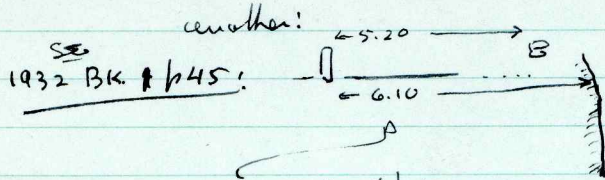 another!
← 5.20 → B
1932 BK. p45:
← 6.10 →
A